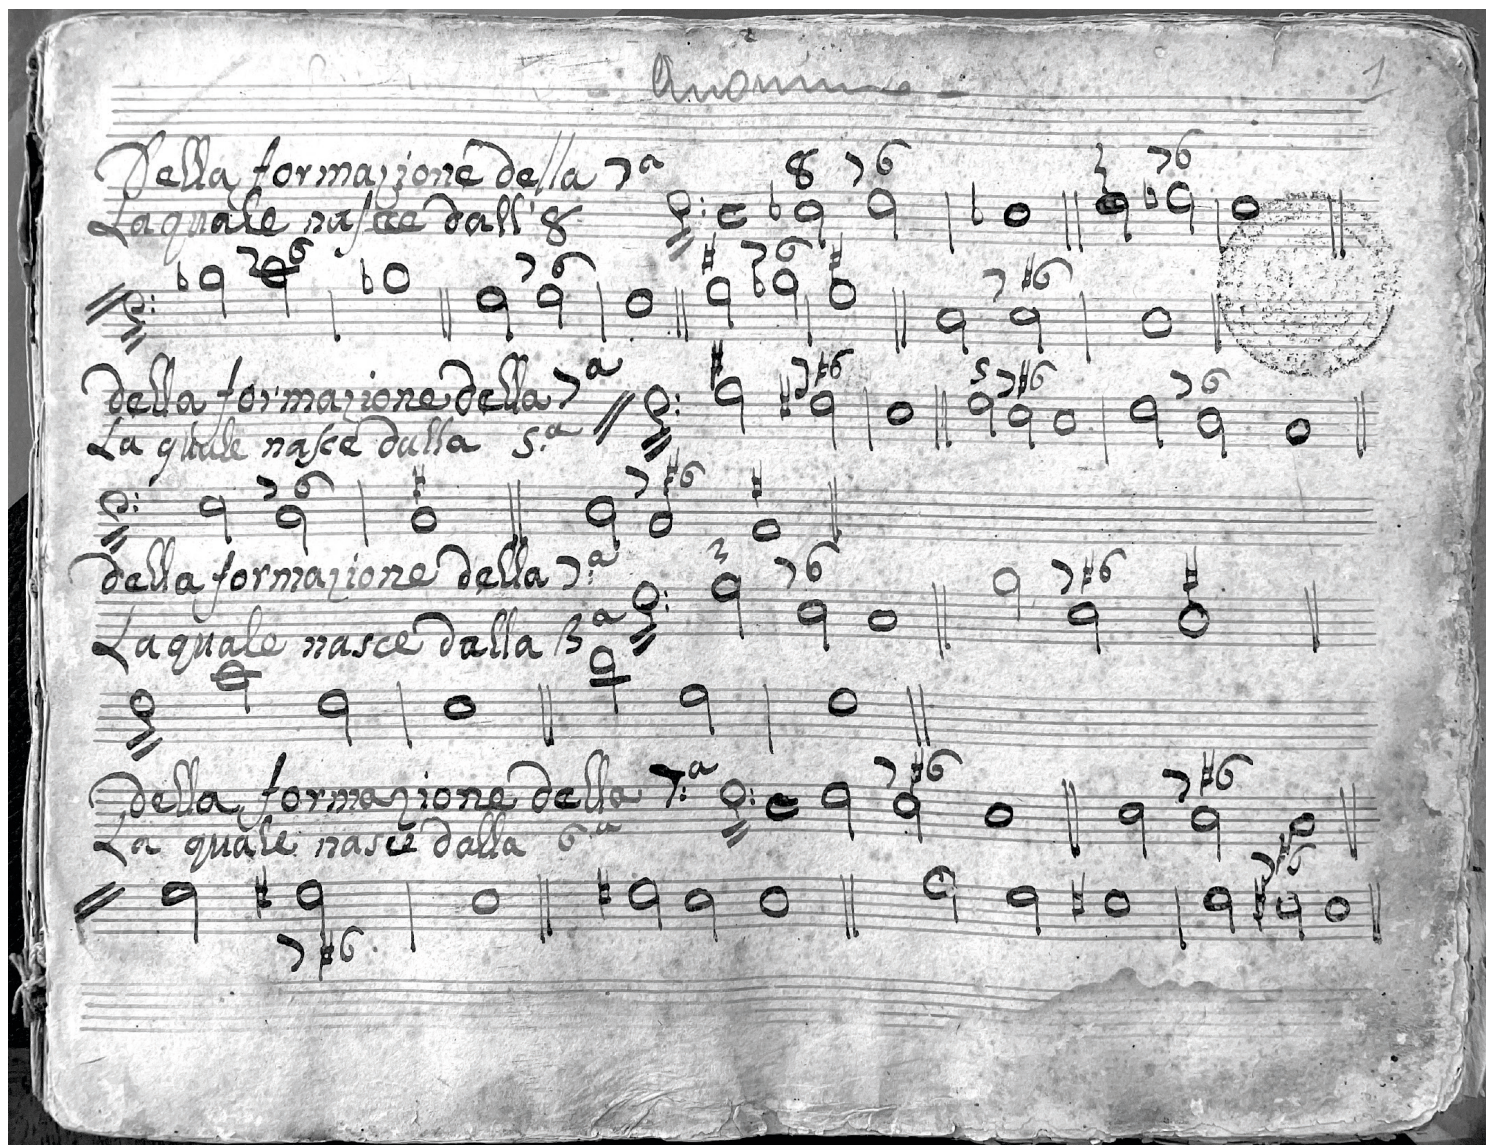 Anonimo
1
Della formazione della 7a
La quale nasce dall' 8
8 7 6 3 7 6
7 6 7 6 7 6 7 6
della formazione della 7a
La quale nasce dalla 5.a
7 6 5 7 6 7 6
7 6 7 6
della formazione della 7.a
La quale nasce dalla 3a
3 7 6 7 6
della formazione della 7.a
La quale nasce dalla 6a
7 6 7 6
7 6
7 6